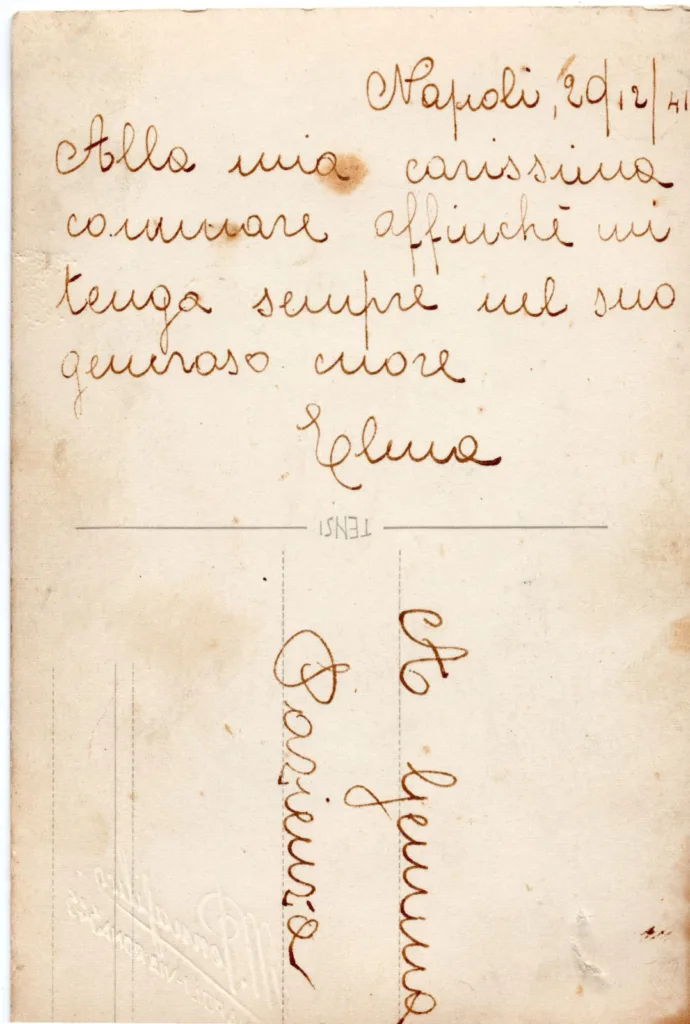 Napoli, 20/12/41
Alla mia carissima
commare affinchè mi
tenga sempre nel suo
generoso cuore
Elma
TENSI
A Gemma
Pazienza
VIA ROMA